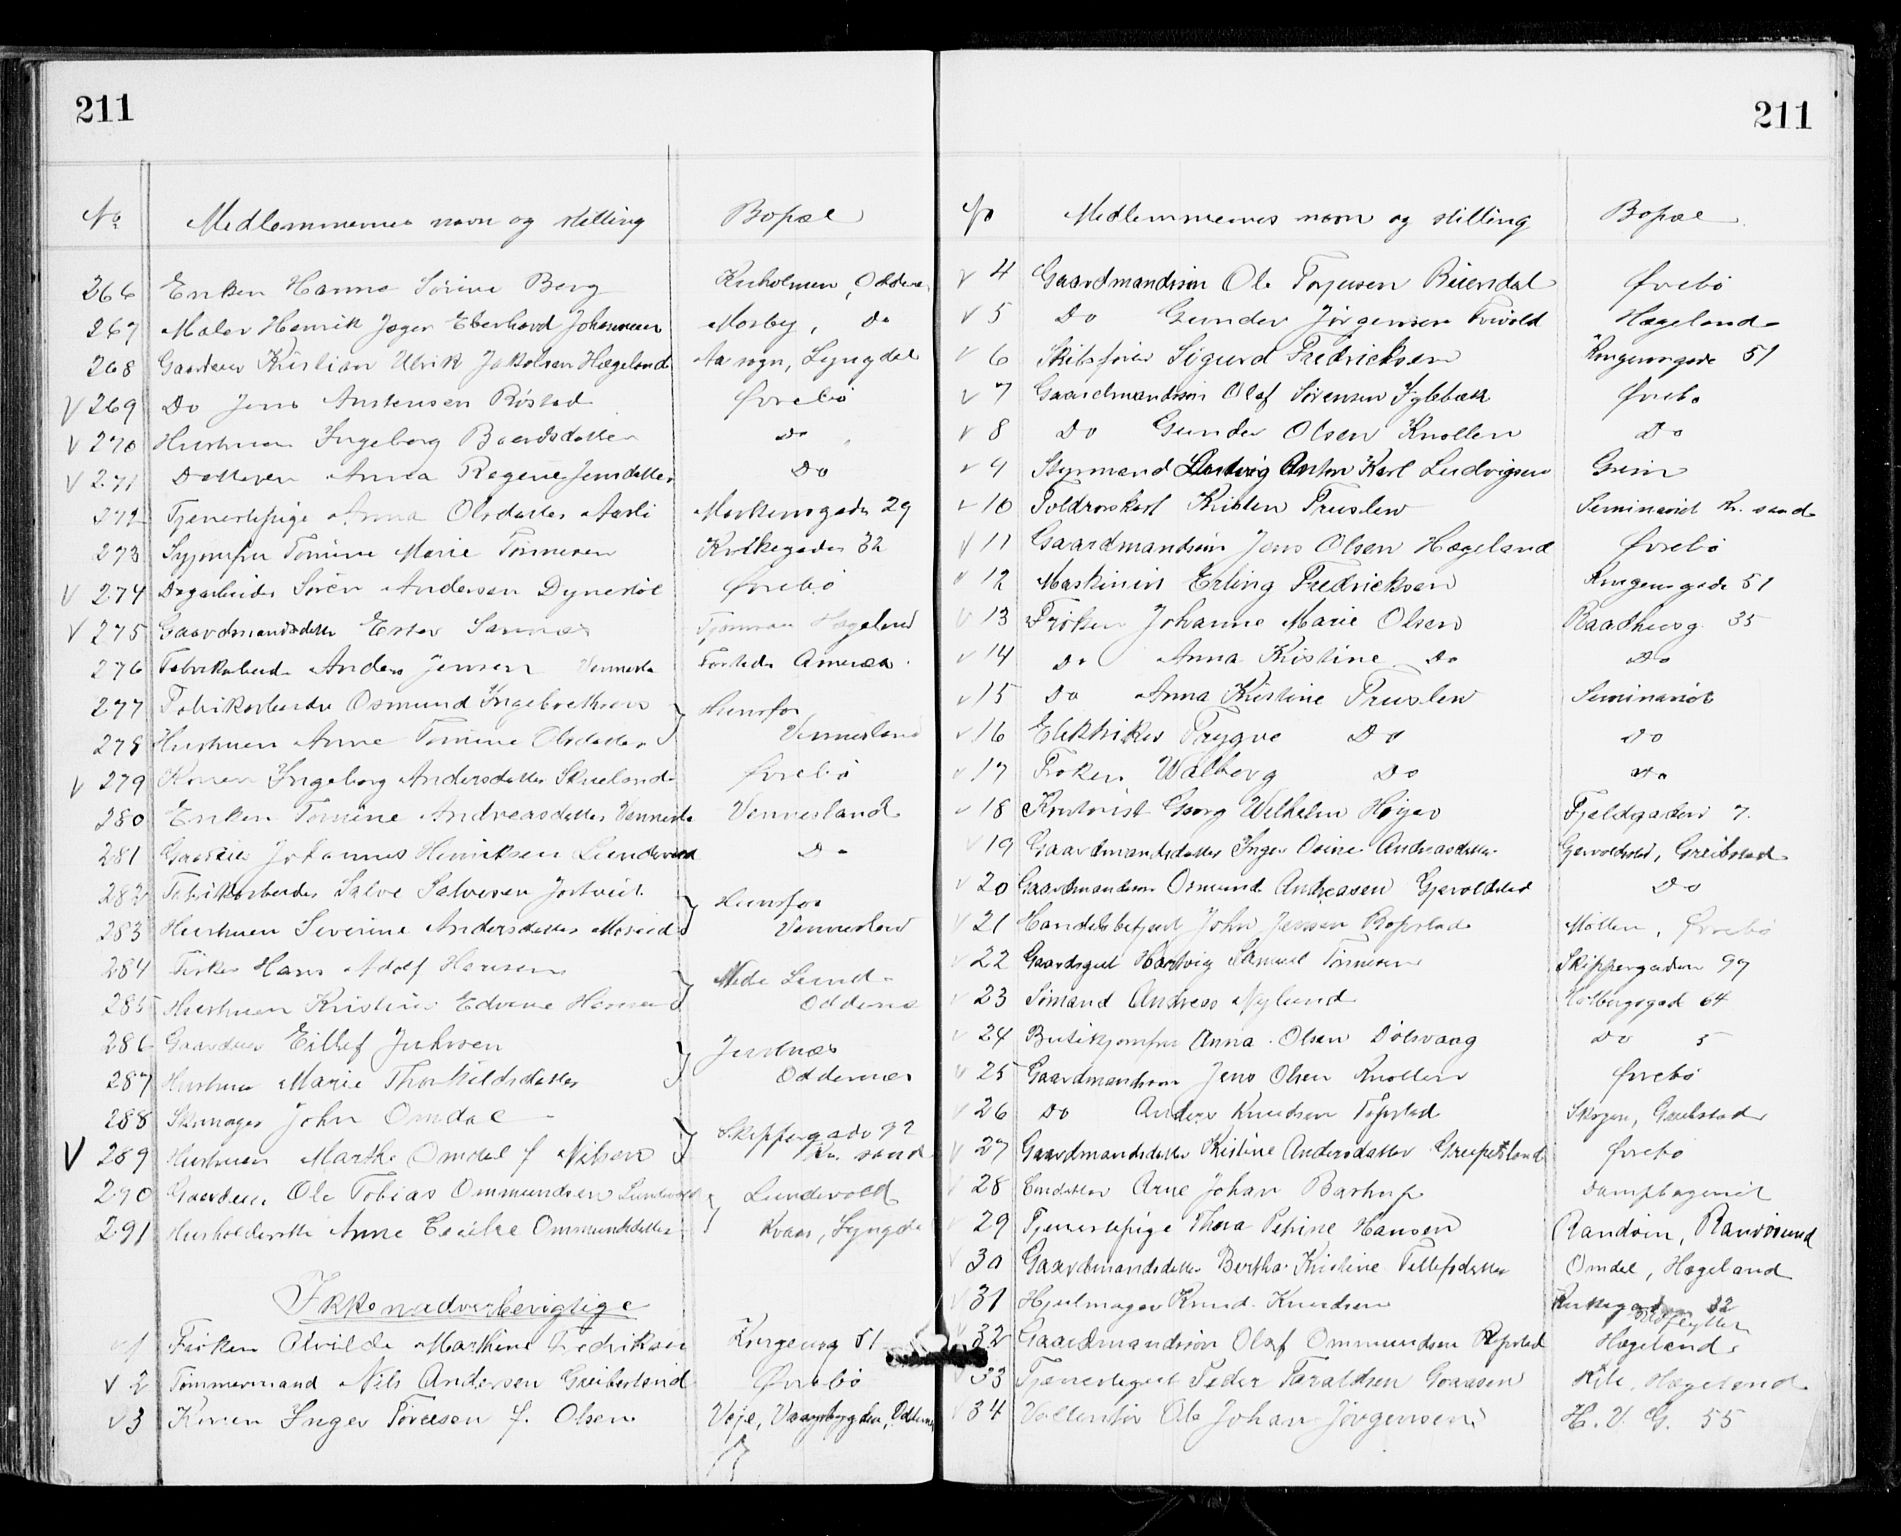 211
No Medlemmernes navn og stilling Bopæl
266 Enken Hanne Sørine Berg Kuholmen, Oddernes
267 Maler Henrik Jager Eberhard Johannesen Mosby, Do
268 Gaardeier Kristian Ulrik Jakobsen Hægeland Aa sogn, Lyngdal
V 269 Do Jens Austensen Røstad Øvrebø
V 270 Hustruen Ingeborg Baardsdatter Do
V 271 Datteren Anna Regine Jensdatter Do
272 Tjenestepige Anna Olsdatter Aasli Markensgaden 29
273 Syjomfru Tomine Marie Tønnesen Kirkegaden 32
V 274 Dagarbeider Søren Andersen Dynestøl Øvrebø
V 275 Gaardmandsdatter Ester Hægeland
276 Fabrikarbeider Anders Jensen Vennesla America
277 Fabrikarbeider Osmund Ingebrethsen } Hunsfos
278 Hustruen Anne Tomine Olsdatter } Vennesland
V 279 Konen Ingeborg Andersdatter Skueland Øvrebø
280 Enken Tomine Andreasdatter Vennesla Vennesland
281 Gaardeier Johannes Henriksen Lundevold Do
282 Fabrikarbeider Salve Salvesen Jortveit } Hunsfos
283 Hustruen Severine Andersdatter } Vennesland
284 Fisker Hans Adolf Hansen } Nedre Lund
285 Hustruen Kristine Edvine Hansen } Oddernes
286 Gaardeier Eillef Juhlsen } Justnæs
287 Hustruen Marie Thorkildsdatter } Oddernes
288 Skomager John Omdal } Skippergaden 92
V 289 Hustruen Marthe Omdal f. Nilsen } Kr. sand
290 Gaardeier Ole Tobias Ommundsen Lundevold } Lundevold
291 Husholderske Anne Cecilie Ommundsdatter } Kvaas, Lyngdal
Ikke nadverberigtige
V 1 Frøken Alvilde Marthine Fredriksen Kongensg 51
V 2 Tømmermand Nils Andersen Greibesland Øvrebø
V 3 Konen Inger Toresen f. Olsen Veje, Vaagsbygden, Oddernes
211
No Medlemmernes navn og stilling Bopæl
V 4 Gaardmandssøn Ole Torjusen Beiendal Øvrebø
V 5 Do Gunder Jørgensen Hægeland
V 6 Skibsfører Sigurd Fredricksen Kongensgade 51
V 7 Gaardmandssøn Olaf Sørensen Øvrebø
V 8 Do Gunder Olsen Knollen Do
V 9 Styrmand Ludvig Anton Karl Ludvigsen Grim
V 10 Toldroskarl Kristen Truslew Seminariet Kr. sand
V 11 Gaardmandssøn Jens Olsen Hægeland Øvrebø
V 12 Maskinist Erling Fredricksen Kongensgade 51
V 13 Frøken Johanne Marie Olsen Raadhusg. 35
V 14 Do Anna Kristine Do Do
V 15 Do Anna Kristine Truslew Seminariet
V 16 Elektriker Trygve Do Do
V 17 Frøken Walborg Do Do
V 18 Kontorist Georg Wilhelm Høyer Fjeldgaden 7
V 19 Gaardmandsdatter Inger Osine Andreasdatter Gjervoldstad, Greibstad
V 20 Gaardmandssøn Osmund Andreasen Gjervoldstad Do
V 21 Handelsbetjent John Jensen Ropstad Møllen, Øvrebø
V 22 Gaardsgut Hartvig Samuel Tønnesen Skippergaden 97
V 23 Sømand Andreas Nylund Holbergsgad 64
V 24 Butikjomfru Anna Olsen Dølsvaag Do 5
V 25 Gaardmandssøn Jens Olsen Knollen Øvrebø
V 26 Do Anders Knudsen Topstad Skogen, Greibstad
V 27 Gaardmandsdatter Kristine Andersdatter Greipesland Øvrebø
V 28 Arne Johan Barhup Dampbageriet
V 29 Tjenestepige Thora Petrine Hansen Randøen, Randøsund
V 30 Gaardmandsdatter Bertha Kristine Tellefsdatter Omdal, Hægeland
V 31 Hjulmager Knud Knudsen 32
V 32 Gaardmandssøn Olaf Ommundsen Ropstad Hægeland
33 Tjenestegut Peder Taraldsen Goaasen Kile, Hægeland
V 34 Ole Johan Jørgensen H. V. G. 55